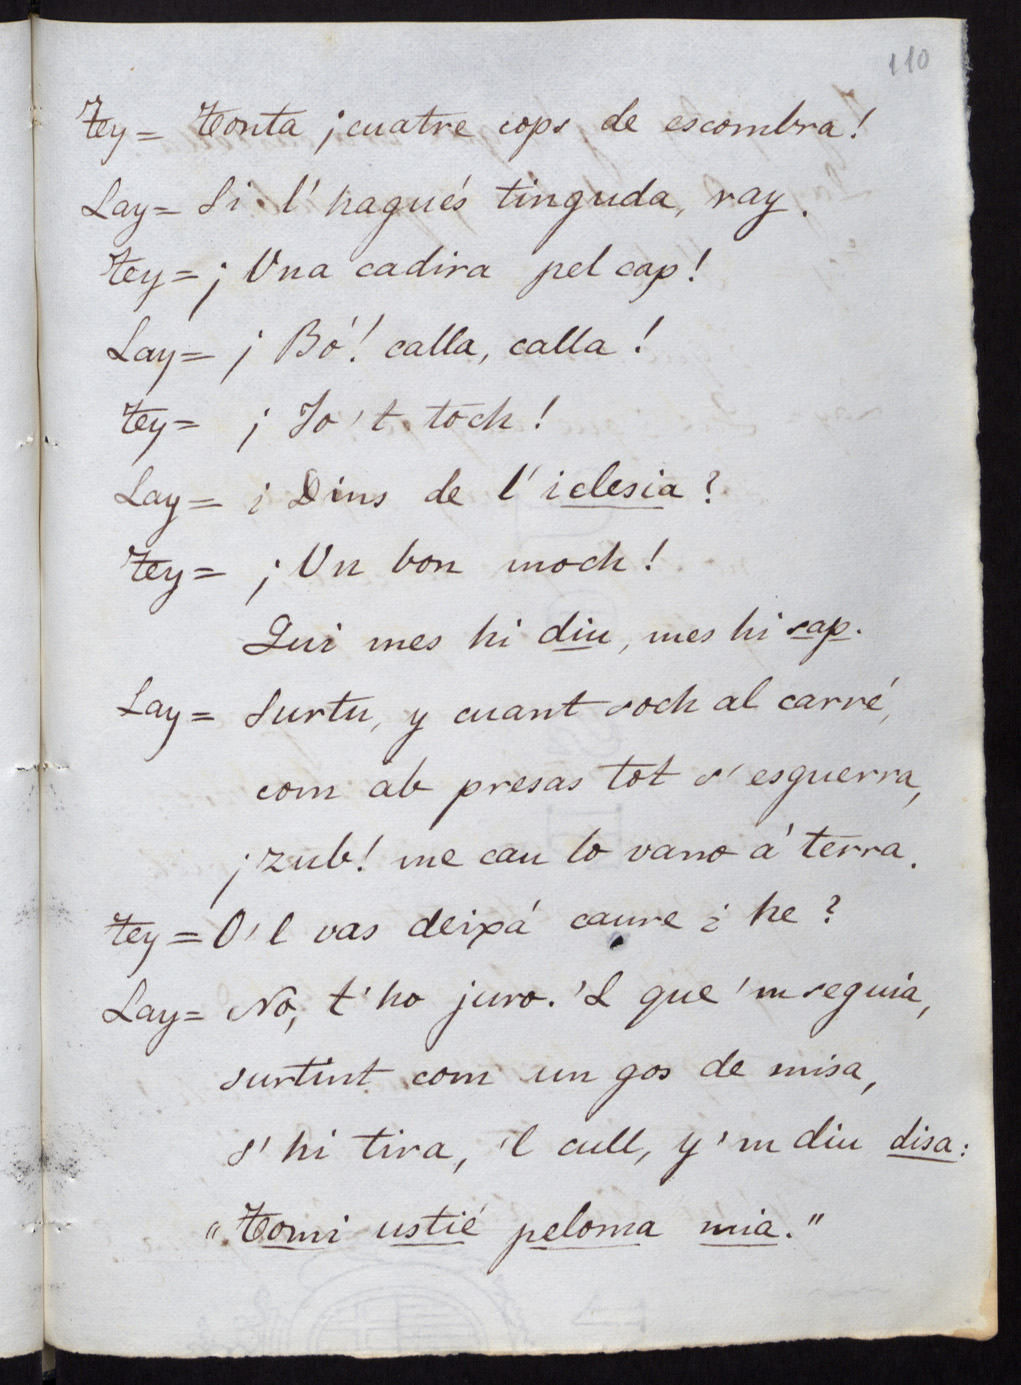 110
Tey = Tonta ¡cuatre cops de escombra!
Lay = Si l' hagués tinguda, ray.
Tey = ¡Una cadira pel cap!
Lay = ¡Bó! calla, calla!
Tey = ¡Jo 't toch!
Lay = ¿Dins de l' iclesia?
Tey = ¡Un bon moch!
Qui mes hi diu, mes hi sap.
Lay = Surtu, y cuant soch al carré,
com ab presas tot s' esguerra,
¡zub! me cau lo vano á terra.
Tey = O 'l vas deixá caure ¿he?
Lay = No, t' ho juro. 'L que 'm seguia,
surtint com un gos de misa,
s' hi tira, 'l cull, y 'm diu disa:
"Tomi ustié peloma mia."